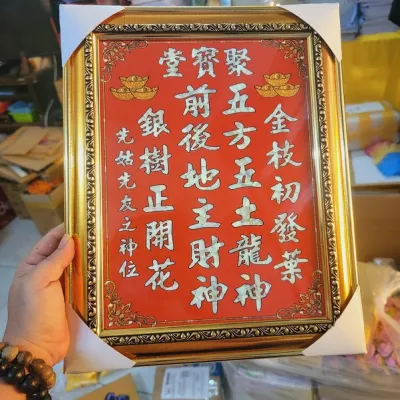 聚寶堂
金枝初發葉
五方五土龍神
前後地主財神
銀樹正開花
先姑先友之神位